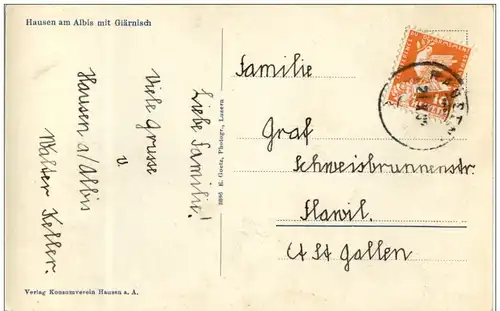 Hausen am Albis mit Glärnisch
Liebe Familie!
Viele Grüsse
v.
Hausen a/Albis
Walter Keller.
Verlag Konsumverein Hausen a. A.
2286 E. Goetz, Photogr., Luzern
Familie
Graf
Schweisbrunnenstr.
Flawil.
Ct St Gallen
HAUSEN